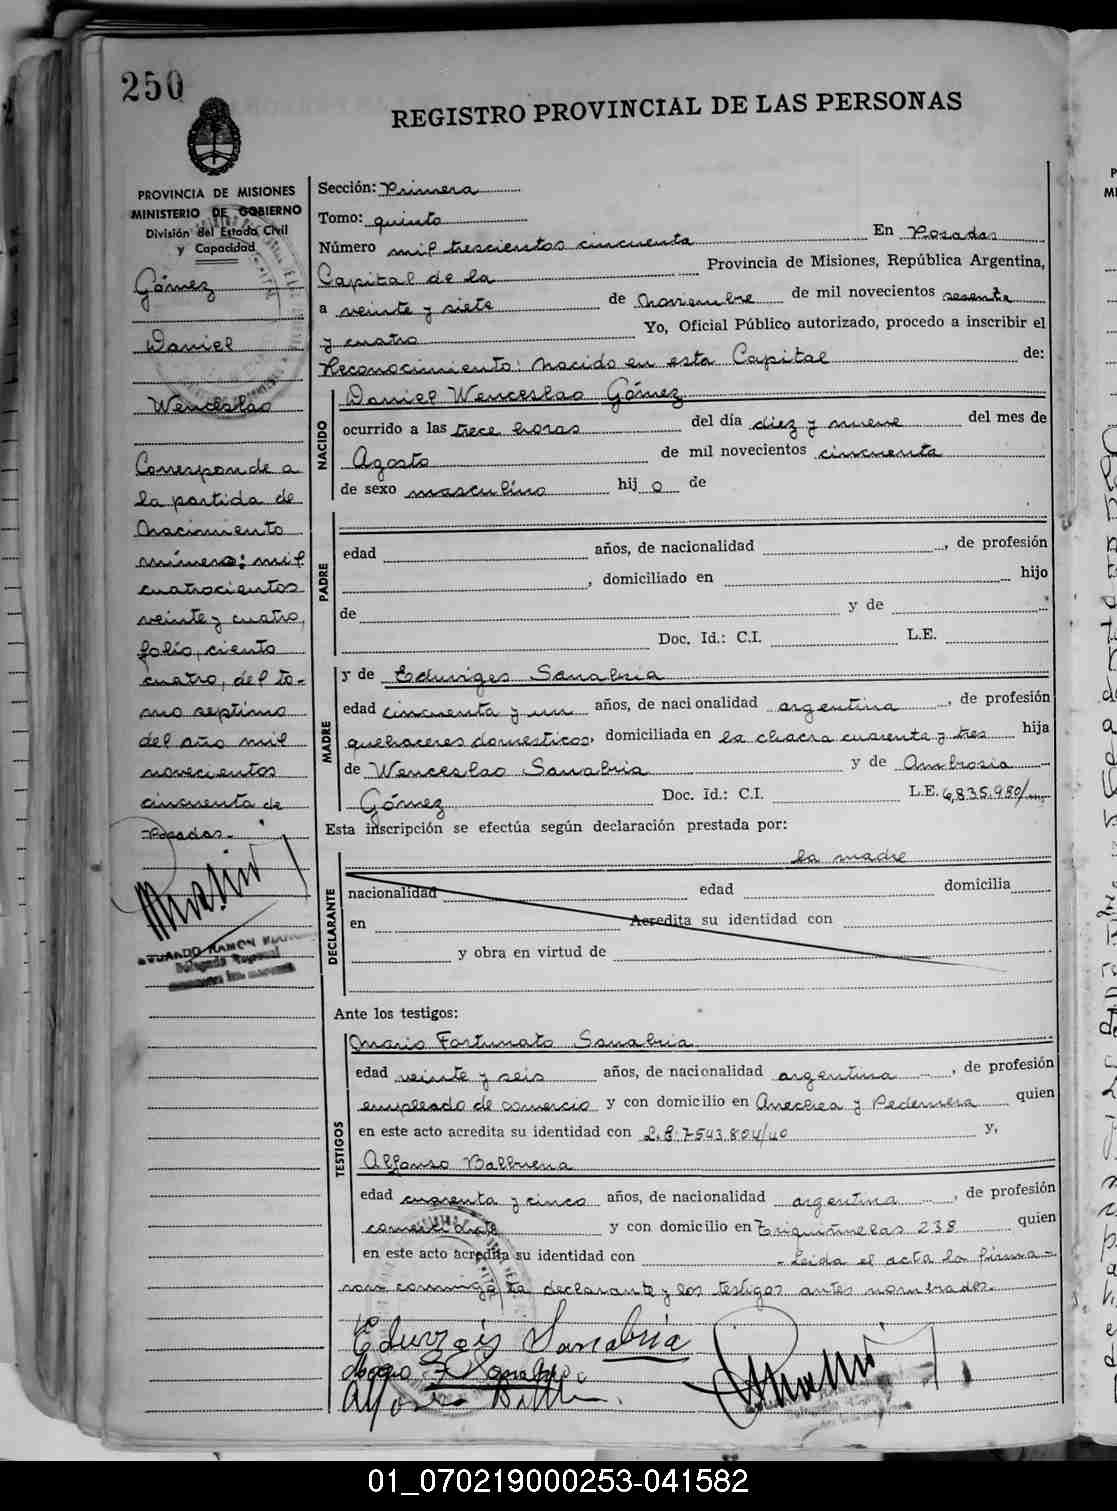 250
REGISTRO PROVINCIAL DE LAS PERSONAS
PROVINCIA DE MISIONES
MINISTERIO DE GOBIERNO
División del Estado Civil
y Capacidad
Gómez
Daniel
Wenceslao
Corresponde a
la partida de
Nacimiento
número: mil
cuatrocientos
veinte y cuatro,
folio, ciento
cuatro, del to-
mo septimo
del año mil
novecientos
cincuenta de
Posadas.-
Sección: Primera
Tomo: quinto
Número mil trescientos cincuenta En Posadas
Capital de la Provincia de Misiones, República Argentina,
a veinte y siete de Noviembre de mil novecientos sesenta
y cuatro Yo, Oficial Público autorizado, procedo a inscribir el
Reconocimiento: Nacido en esta Capital de:
NACIDO
Daniel Wenceslao Gómez
ocurrido a las trece horas del día diez y nueve del mes de
Agosto de mil novecientos cincuenta
de sexo masculino hij o de
PADRE
edad años, de nacionalidad , de profesión
, domiciliado en hijo
de y de
Doc. Id.: C.I. L.E.
MADRE
y de Eduviges Sanabria
edad cincuenta y un años, de nacionalidad argentina , de profesión
quehaceres domesticos, domiciliada en la chacra cuarenta y tres hija
de Wenceslao Sanabria y de Ambrosia
Gómez Doc. Id.: C.I. L.E. 6,835.980/
Esta inscripción se efectúa según declaración prestada por:
la madre
DECLARANTE
nacionalidad edad domicilia
en Acredita su identidad con
y obra en virtud de
Ante los testigos:
TESTIGOS
Mario Fortunato Sanabria
edad veinte y seis años, de nacionalidad argentina , de profesión
empleado de comercio y con domicilio en Anechea y Pedernera quien
en este acto acredita su identidad con L.E. 7543.804/40 y,
Alfonso Balbuena
edad cuarenta y cinco años, de nacionalidad argentina , de profesión
y con domicilio en 238 quien
en este acto acredita su identidad con - Leida el acta la firma-
ron conmigo la declarante y los testigos antes nombrados.
Sanabria
RAMON
Delegado Regional
01_070219000253-041582